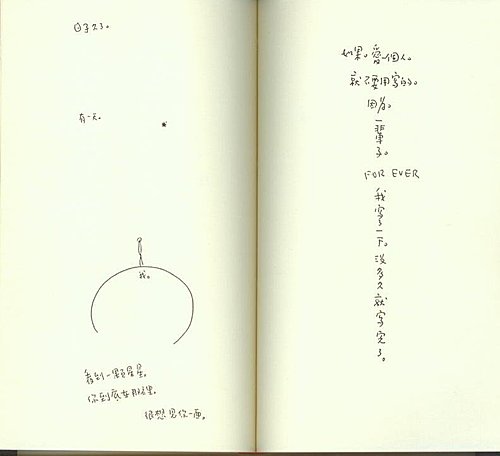 日子久了。
有一天。
我。
看到一顆星星。
你到底在那裡。
很想見你一面。
如果。愛一個人。
就不要用寫的。
因為。
一輩子。
FOR EVER
我寫了一下。沒多久就寫完了。